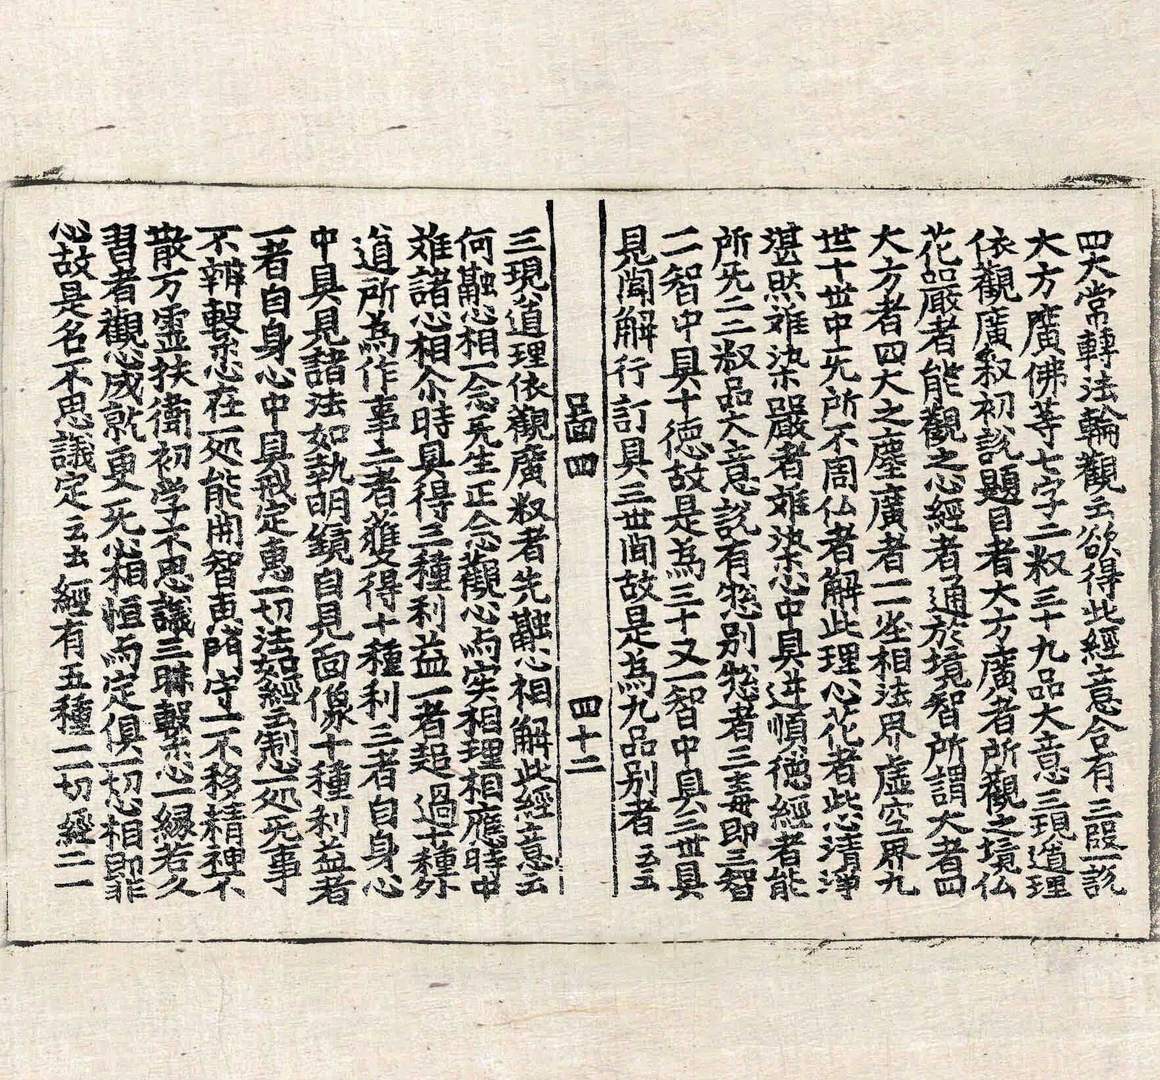 四大常轉法輪觀云欲得此經意合有三段一說
大方廣佛等七字二釈三十九品大意三現道理
依觀廣叙初說題目者大方廣者所觀之境仏
花嚴者能觀之心經者通於境智所謂大者四
大方者四大之塵廣者一一坐相法界虛空界九
世十世中无所不周仏者解此理心花者此心清淨
湛然难染嚴者难染心中具进順德經者能
所无二三叙品大意說有惣别惣者三毒即三智
二智中具十德故是為三十又一智中具三世具
見聞解行訂具三世間故是為九品别者云云
啚四 四十二
三現道理依觀廣叙者先融心相解此經意云
何融心相一念无生正念觀心而实相理相應時中
难諸心相尒時具得三種利益一者超過十種外
道所為作事二者雙得十種利三者自身心
中具見諸法如執明鏡自見面像十種利益者
一者自身心中具戒定惠一切法如經云制心一処无事
不辨繫心在一処能開智恵門守一不移精神不
散万靈扶衛初学不思議三昧繫心一縁若久
習者觀心成就更无心相恒而定俱一切心相即非
心故是名不思議定云云經有五種一一切經二一